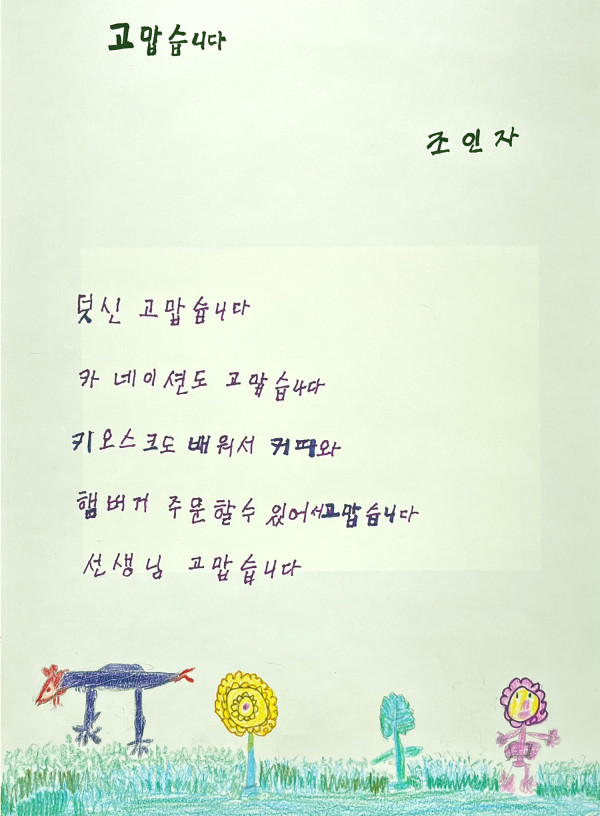 고맙습니다
조인자
덧신 고맙습니다
카네이션도 고맙습니다
키오스크도 배워서 커피와
햄버거 주문할수 있어서고맙습니다
선생님 고맙습니다